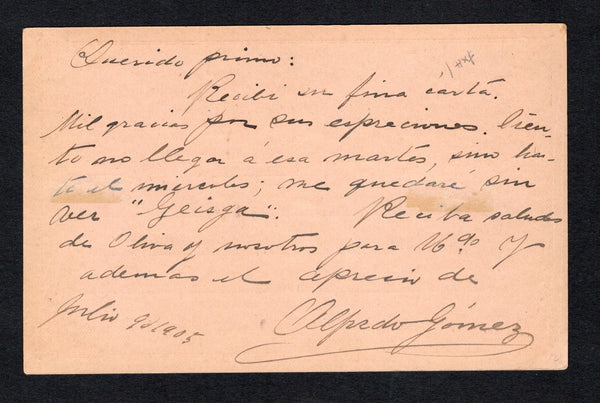 Querido primo:
Recibí su fina carta.
Mil gracias por sus espreciones. Sien-
to no llegar á esa martes, sino has-
ta el miercoles; me quedaré sin
ver "Geisga". Reciba saludos
de Oliva y nosotros para y
además el aprecio de
Julio 9/1905 Alfredo Gómez